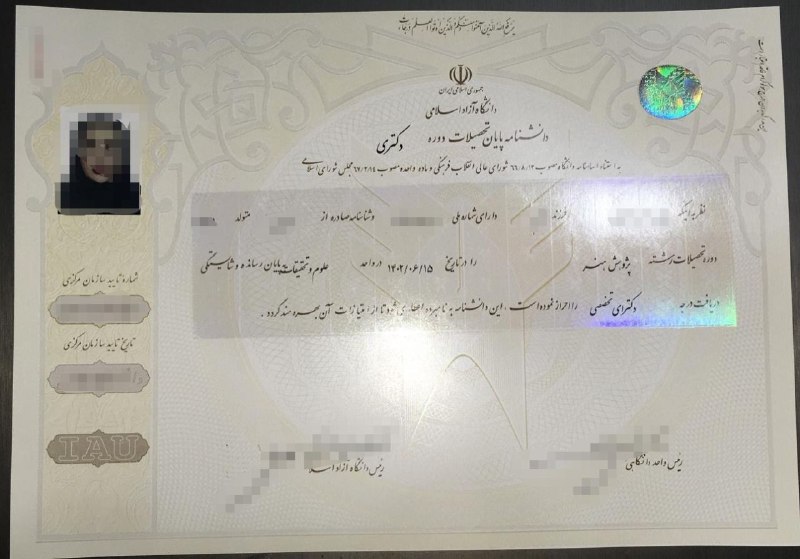 یرفع الله الذین آمنوا منکم والذین اوتوا العلم درجات
جمهوری اسلامی ایران
دانشگاه آزاد اسلامی
دانشنامه پایان تحصیلات دوره دکتری
به استناد اساسنامه دانشگاه مصوب ۶۶/۸/۱۲ شورای عالی انقلاب فرهنگی و ماده واحده مصوب ۶۷/۲/۱۴ مجلس شورای اسلامی
نظر به اینکه فرزند دارای شماره ملی و شناسنامه صادره از متولد
دوره تحصیلات رشته پژوهش هنر را در تاریخ ۱۴۰۲/۰۶/۱۵ در واحد علوم و تحقیقات به پایان رسانده و شایستگی
دریافت درجه دکترای تخصصی را احراز نموده است، این دانشنامه به نامبرده اعطا می شود تا از امتیازات آن بهره مند گردد.
رئیس واحد دانشگاهی
رئیس دانشگاه آزاد
شماره تایید سازمان مرکزی
تاریخ تایید سازمان مرکزی
IAU